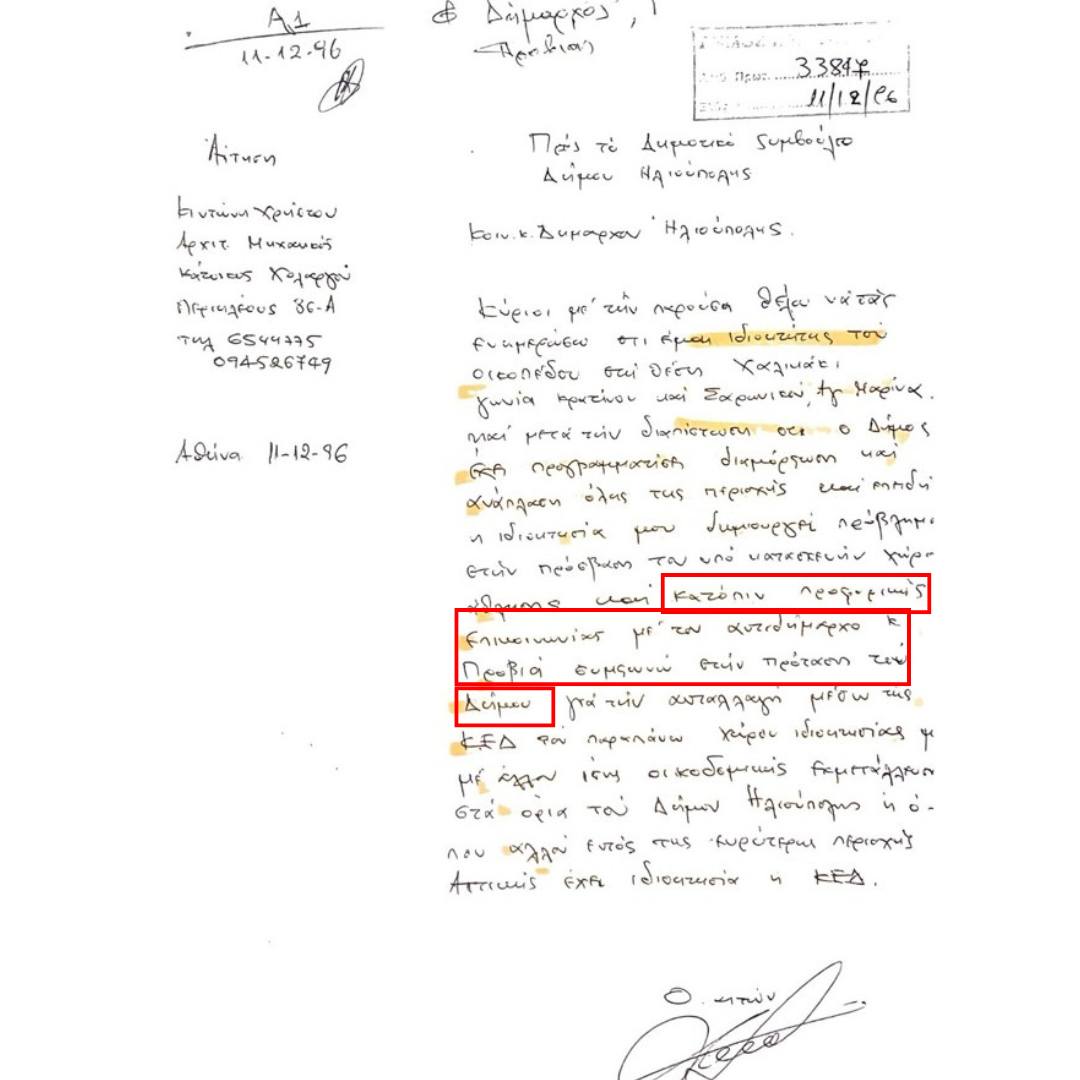 Α1
11-12-96
Δήμαρχος
Προβιάς
33847
11/12/96
Αίτηση
Χρήστου
Αρχιτ. Μηχανικός
Κάτοικος Χολαργού
Περικλέους 36-Α
τηλ 6544775
094526749
Αθήνα 11-12-96
Πρός τό Δημοτικό Συμβούλιο
Δήμου Ηλιούπολης
Κοιν. κ. Δήμαρχον Ηλιούπολης.
Κύριοι μέ τήν παρούσα θέλω νά σάς
ενημερώσω οτι είμαι ιδιοκτήτης του
οικοπέδου στή θέση Χαλικάκι
γωνία Κρατίνου καί Σαρωνικού, Αγ Μαρίνα.
καί μετά τήν διαπίστωση οτι ο Δήμος
έχει προγραμματίσει διαμόρφωση καί
ανάπλαση όλης της περιοχής καί επειδή
η ιδιοκτησία μου δημιουργεί πρόβλημα
στήν πρόσβαση του υπό κατασκευήν χώρο
άθλησης καί κατόπιν προφορικής
επικοινωνίας μέ τον αντιδήμαρχο κ
Προβιά συμφωνώ στήν πρόταση του
Δήμου γιά τήν ανταλλαγή μέσω της
ΚΕΔ του παραπάνω χώρου ιδιοκτησίας μ
μέ άλλον ίσης οικοδομικής εκμετάλλευσ
στά όρια τού Δήμου Ηλιούπολης ή ό-
που αλλού εντός της ευρύτερης περιοχής
Αττικής έχει ιδιοκτησία η ΚΕΔ.
Ο αιτών